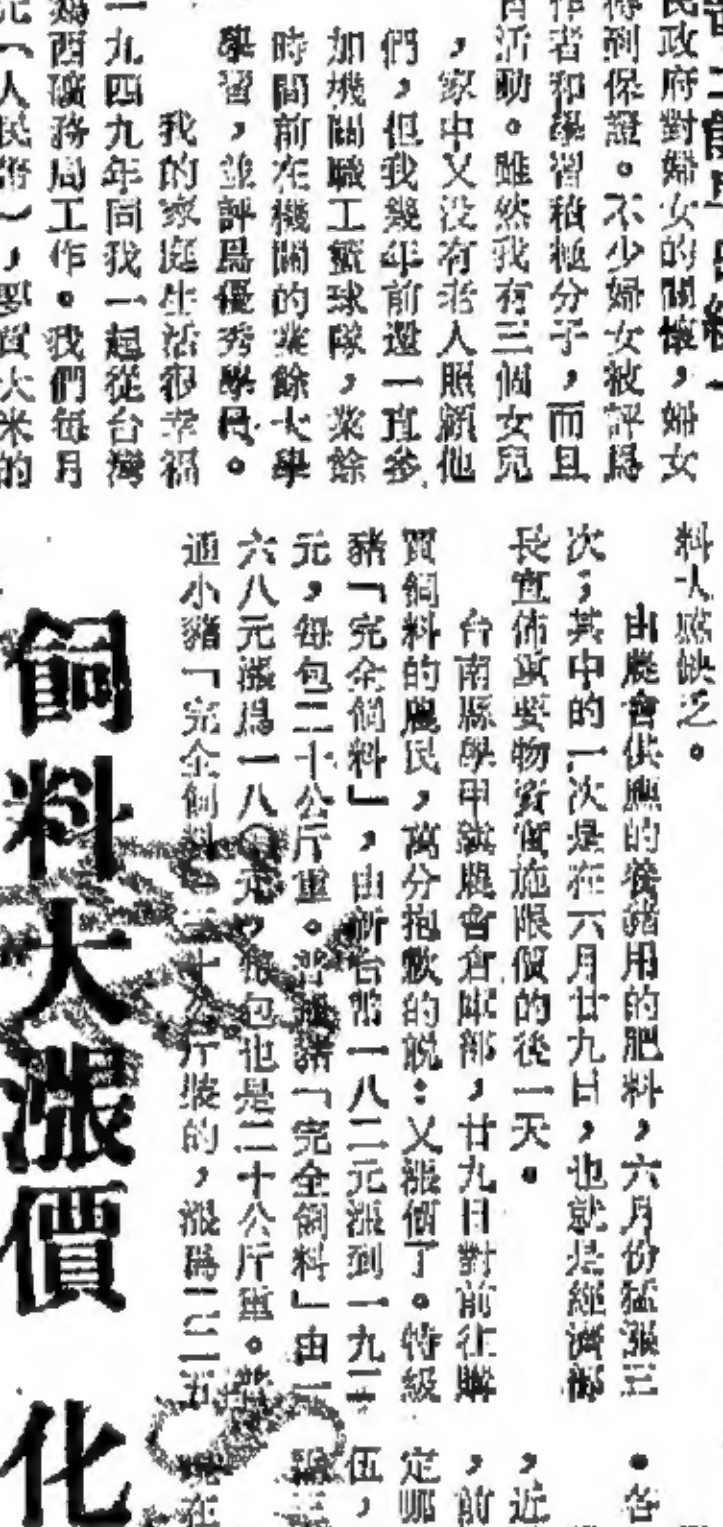 民政府對婦女的關懷，婦女
得到保證。不少婦女被評爲
作者和學習積極分子，而且
活動。雖然我有三個女兒
，家中又没有老人照顧他
們，但我幾年前還一直參
加機關職工籃球隊，業餘
時間前在機關的業餘大學
學習，並評爲優秀學員。
我的家庭生活很幸福
一九四九年同我一起從台灣
西礦務局工作。我們每月
元（人民幣），要買大米的
料大感缺乏。
由農會供應的養豬用的肥料，六月份猛漲三
次；其中的一次是在六月廿九日，也就是經濟部
長宣佈重要物資實施限價的後一天。
台南縣學甲鎮農會倉庫部，廿九日對前往購
買飼料的農民，萬分抱歉的說：又漲價了。特級
豬「完全飼料」，由新台幣一八二元漲到一九二
元，每包二十公斤重。普通豬「完全飼料」由一
六八元漲爲一八〇元，每包也是二十公斤重。
通小豬「完全飼料」二十公斤裝的，漲爲二二五
飼料大漲價 化
各
近
，前
定哪
伍，
在